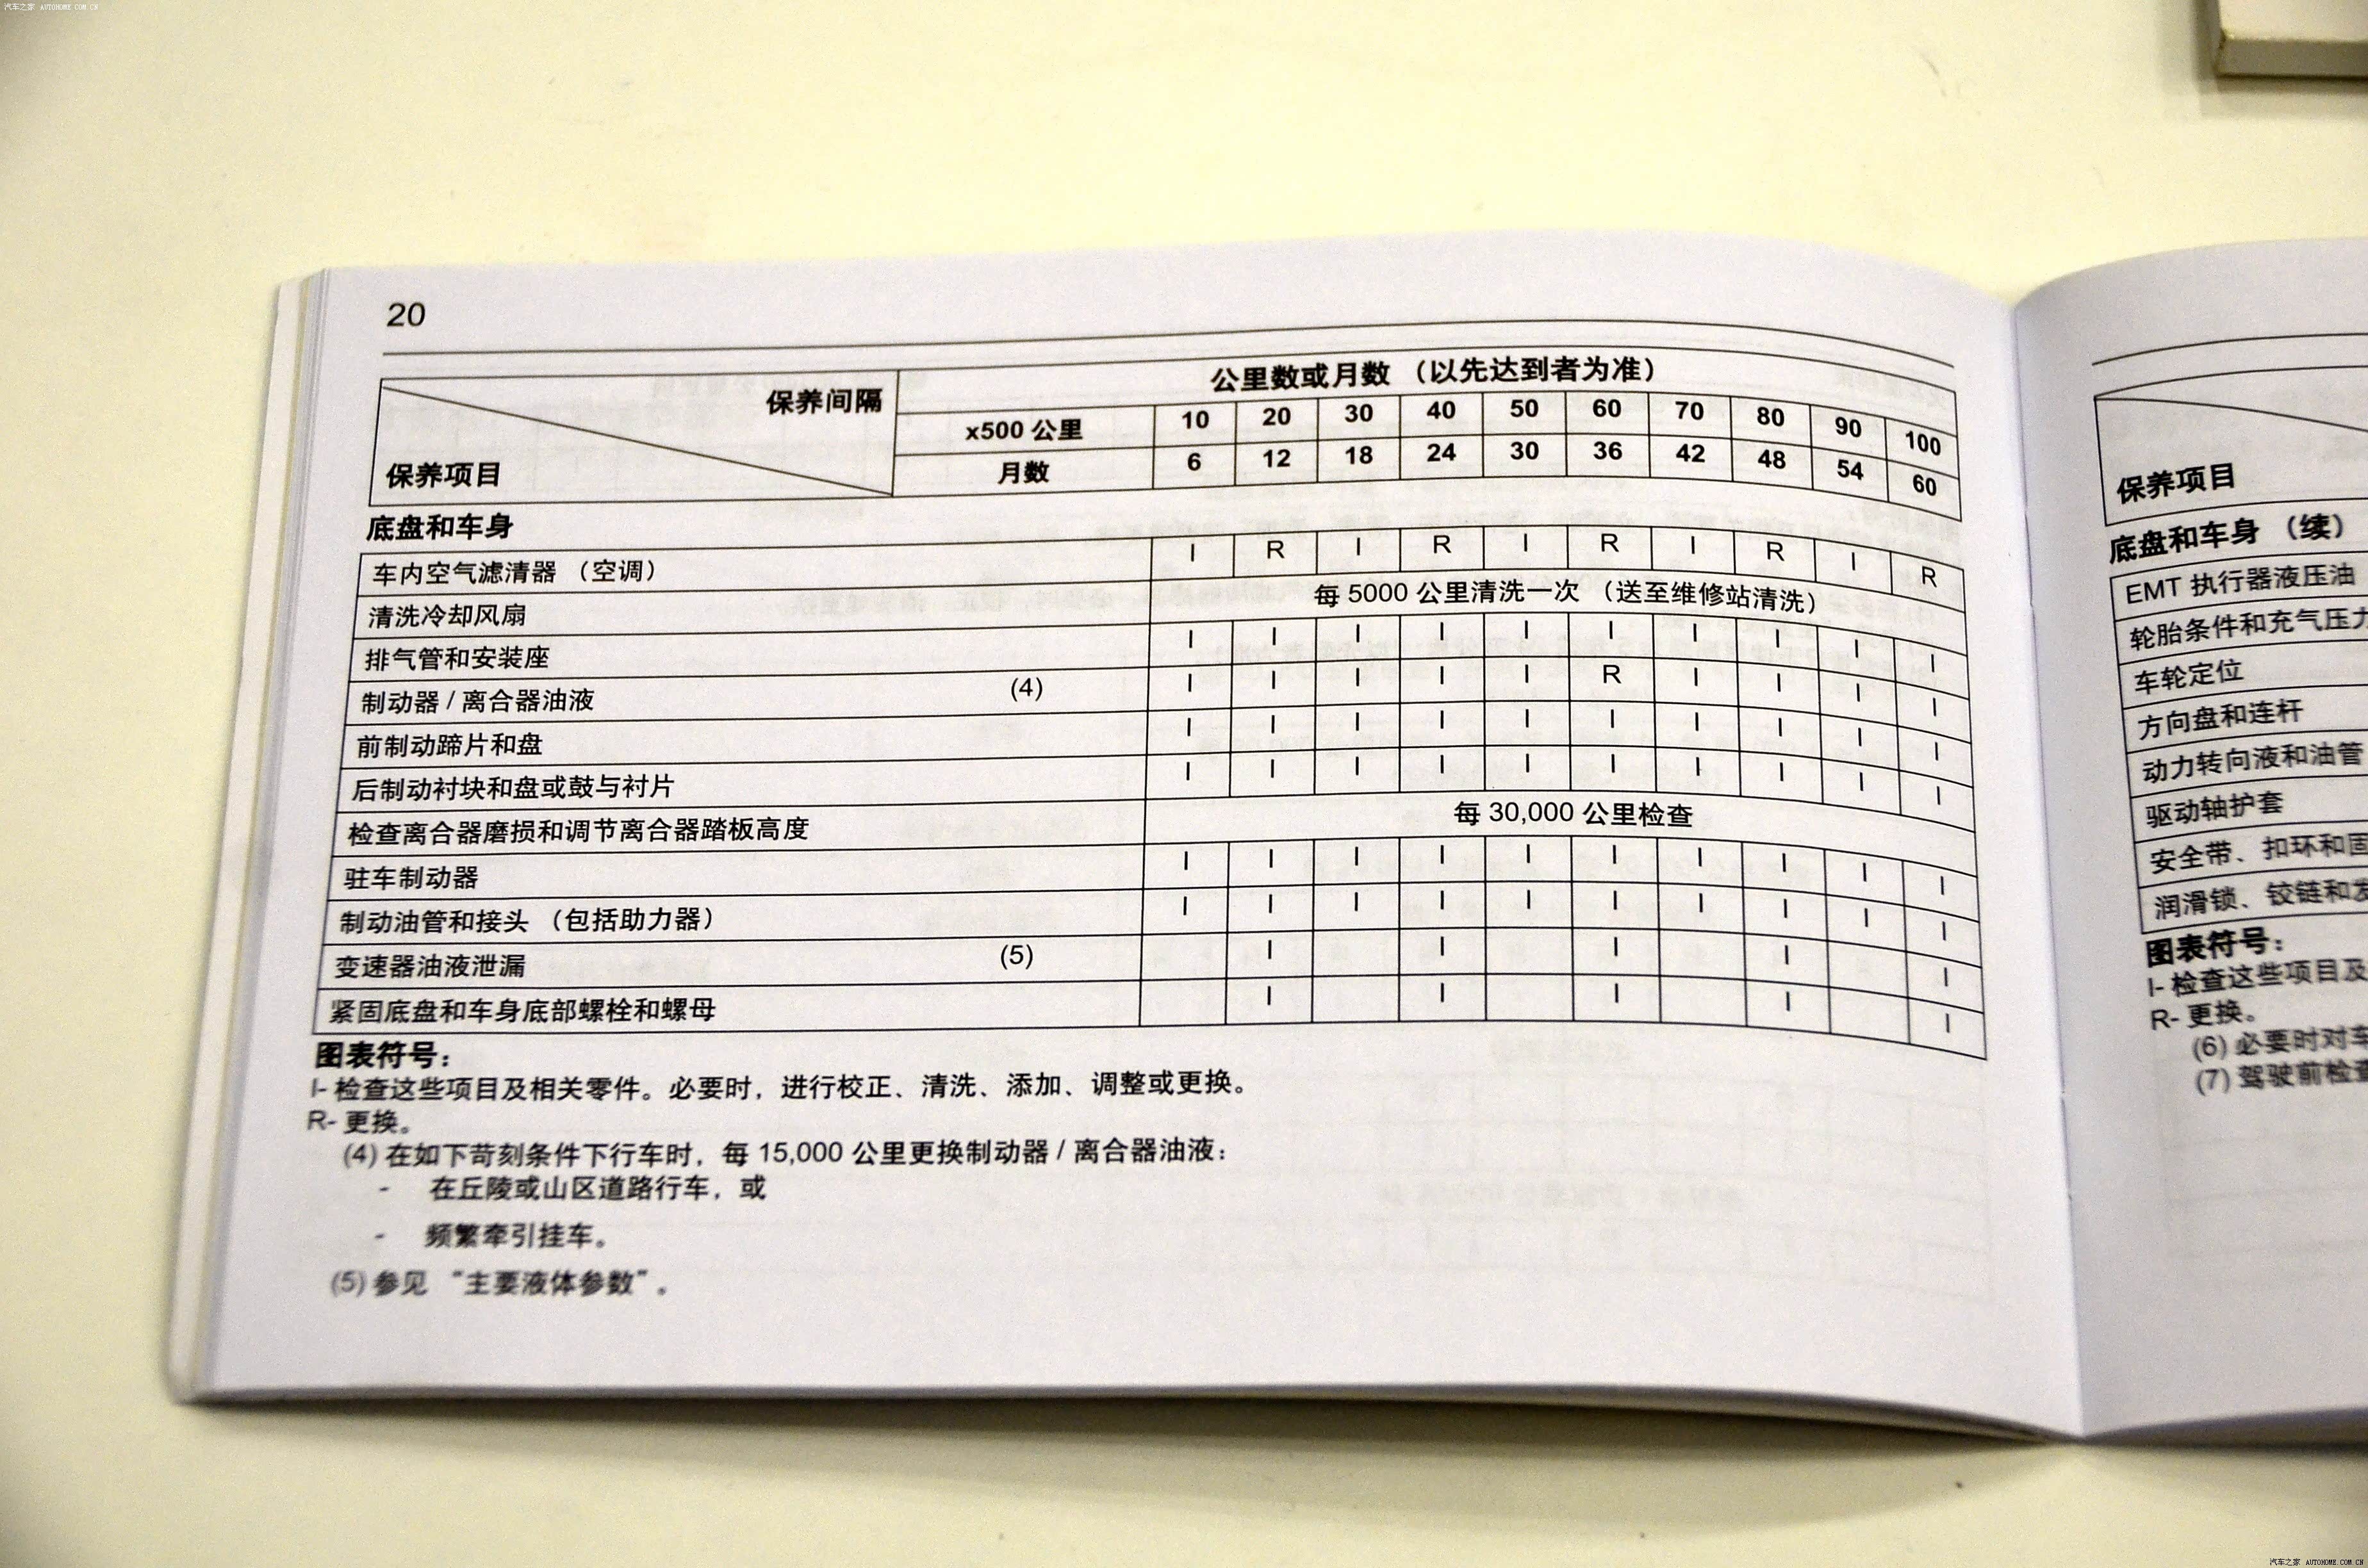 汽车之家 AUTOHOME.COM.CN
20
保养间隔 公里数或月数 （以先达到者为准）
x500 公里 10 20 30 40 50 60 70 80 90 100
保养项目 月数 6 12 18 24 30 36 42 48 54 60
底盘和车身
车内空气滤清器 （空调） I R I R I R I R I R
清洗冷却风扇 每 5000 公里清洗一次 （送至维修站清洗）
排气管和安装座 I I I I I I I I I I
制动器 / 离合器油液 (4) I I I I I R I I I I
前制动蹄片和盘 I I I I I I I I I I
后制动衬块和盘或鼓与衬片 I I I I I I I I I I
检查离合器磨损和调节离合器踏板高度 每 30,000 公里检查
驻车制动器 I I I I I I I I I I
制动油管和接头 （包括助力器） I I I I I I I I I I
变速器油液泄漏 (5) I I I I I
紧固底盘和车身底部螺栓和螺母 I I I I I
图表符号：
I- 检查这些项目及相关零件。必要时，进行校正、清洗、添加、调整或更换。
R- 更换。
(4) 在如下苛刻条件下行车时，每 15,000 公里更换制动器 / 离合器油液：
- 在丘陵或山区道路行车，或
- 频繁牵引挂车。
(5) 参见 “主要液体参数”。
保养项目
底盘和车身 （续）
EMT 执行器液压油
轮胎条件和充气压力
车轮定位
方向盘和连杆
动力转向液和油管
驱动轴护套
安全带、扣环和固
润滑锁、铰链和发
图表符号：
I- 检查这些项目及
R- 更换。
(6) 必要时对车
(7) 驾驶前检查
汽车之家 AUTOHOME.COM.CN